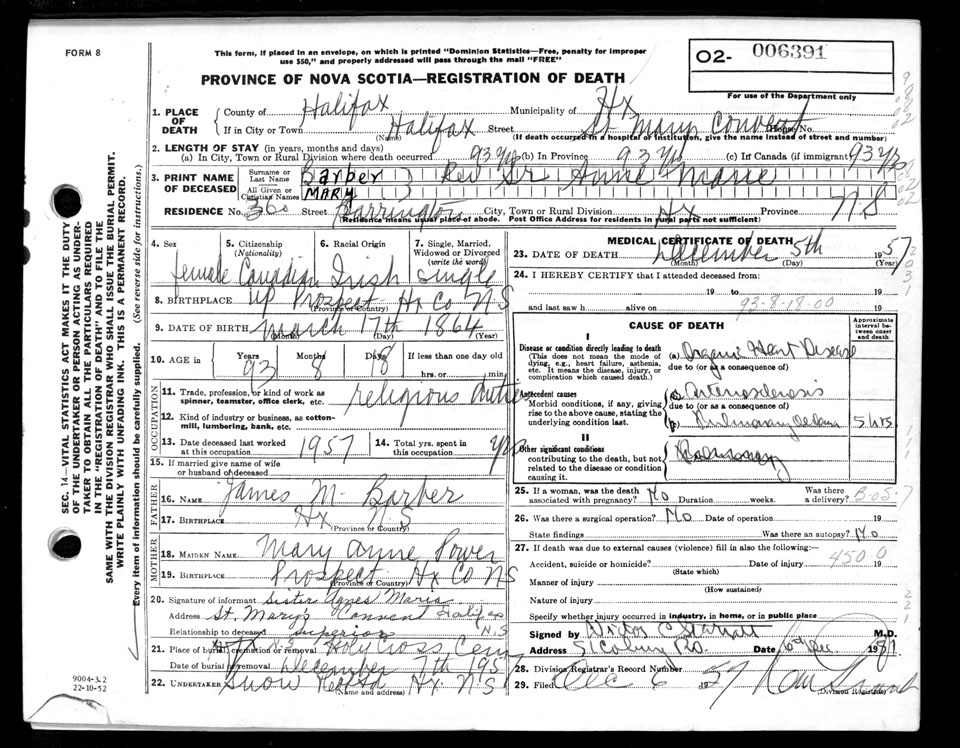 FORM 8
This form, if placed in an envelope, on which is printed "Dominion Statistics—Free, penalty for improper
use $50," and properly addressed will pass through the mail "FREE"
O2- 006391
For use of the Department only
PROVINCE OF NOVA SCOTIA—REGISTRATION OF DEATH
1. PLACE OF DEATH
County of Halifax Municipality of Hx
If in City or Town Halifax Street St Marys Convent House No.
(Name) (If death occurred in a hospital or institution, give the name instead of street and number)
2. LENGTH OF STAY (in years, months and days)
(a) In City, Town or Rural Division where death occurred 93 Yrs (b) In Province 93 Yrs (c) In Canada (if immigrant) 93 Yrs
3. PRINT NAME OF DECEASED
Surname or Last Name Barber Rev Sr Anne Marie
All Given or Christian Names MARY
RESIDENCE No. 360 Street Barrington City, Town or Rural Division Hx Province N.S
(Residence means usual place of abode. Post Office Address for residents in rural parts not sufficient)
4. Sex female
5. Citizenship (Nationality) Canadian
6. Racial Origin Irish
7. Single, Married, Widowed or Divorced (write the word) single
8. BIRTHPLACE up Prospect Hx Co NS
(Province or Country)
9. DATE OF BIRTH March 17th 1864
(Month) (Day) (Year)
10. AGE in Years 93 Months 8 Days 8 If less than one day old hrs. or min.
OCCUPATION
11. Trade, profession, or kind of work as spinner, teamster, office clerk, etc. religious duties
12. Kind of industry or business, as cotton-mill, lumbering, bank, etc.
13. Date deceased last worked at this occupation 1957
14. Total yrs. spent in this occupation yrs
15. If married give name of wife or husband of deceased
FATHER
16. NAME James M. Barber
17. BIRTHPLACE Hx NS
(Province or Country)
MOTHER
18. MAIDEN NAME Mary Anne Power
19. BIRTHPLACE Prospect Hx Co NS
(Province or Country)
20. Signature of informant Sister Agnes Maria
Address St. Marys Convent Halifax N.S
Relationship to deceased superior
21. Place of burial, cremation or removal Holy Cross Cem
Date of burial or removal December 7th 195
22. UNDERTAKER Snow Hx N.S
(Name and address)
MEDICAL CERTIFICATE OF DEATH
23. DATE OF DEATH December 5th 1957
(Month) (Day) (Year)
24. I HEREBY CERTIFY that I attended deceased from:
19 to 19
and last saw h alive on 19
93-8-18-00
CAUSE OF DEATH
Approximate interval between onset and death
I
Disease or condition directly leading to death
(This does not mean the mode of dying, e.g., heart failure, asthenia, etc. It means the disease, injury, or complication which caused death.)
(a) Organic Heart Disease
due to (or as a consequence of)
Antecedent causes
Morbid conditions, if any, giving rise to the above cause, stating the underlying condition last.
Arteriosclerosis
due to (or as a consequence of)
(b) Pulmonary Oedema 5 hrs
II
Other significant conditions
contributing to the death, but not related to the disease or condition causing it.
25. If a woman, was the death associated with pregnancy? No Duration weeks. Was there a delivery?
26. Was there a surgical operation? No Date of operation 19
State findings Was there an autopsy? No
27. If death was due to external causes (violence) fill in also the following:—
Accident, suicide or homicide? Date of injury 19
(State which)
450 0
Manner of injury
(How sustained)
Nature of injury
Specify whether injury occurred in industry, in home, or in public place
Signed by M.D.
Address 51 Coburg Rd. Date 6 Dec 19
28. Division Registrar's Record Number
29. Filed Dec 6 1957
(Division Registrar)
SEC. 14—VITAL STATISTICS ACT MAKES IT THE DUTY
OF THE UNDERTAKER OR PERSON ACTING AS UNDER-
TAKER TO OBTAIN ALL THE PARTICULARS REQUIRED
IN THE "REGISTRATION OF DEATH" AND TO FILE THE
SAME WITH THE DIVISION REGISTRAR WHO SHALL ISSUE THE BURIAL PERMIT.
WRITE PLAINLY WITH UNFADING INK. THIS IS A PERMANENT RECORD.
Every item of information should be carefully supplied. (See reverse side for instructions.)
9004-3.2
22-10-52